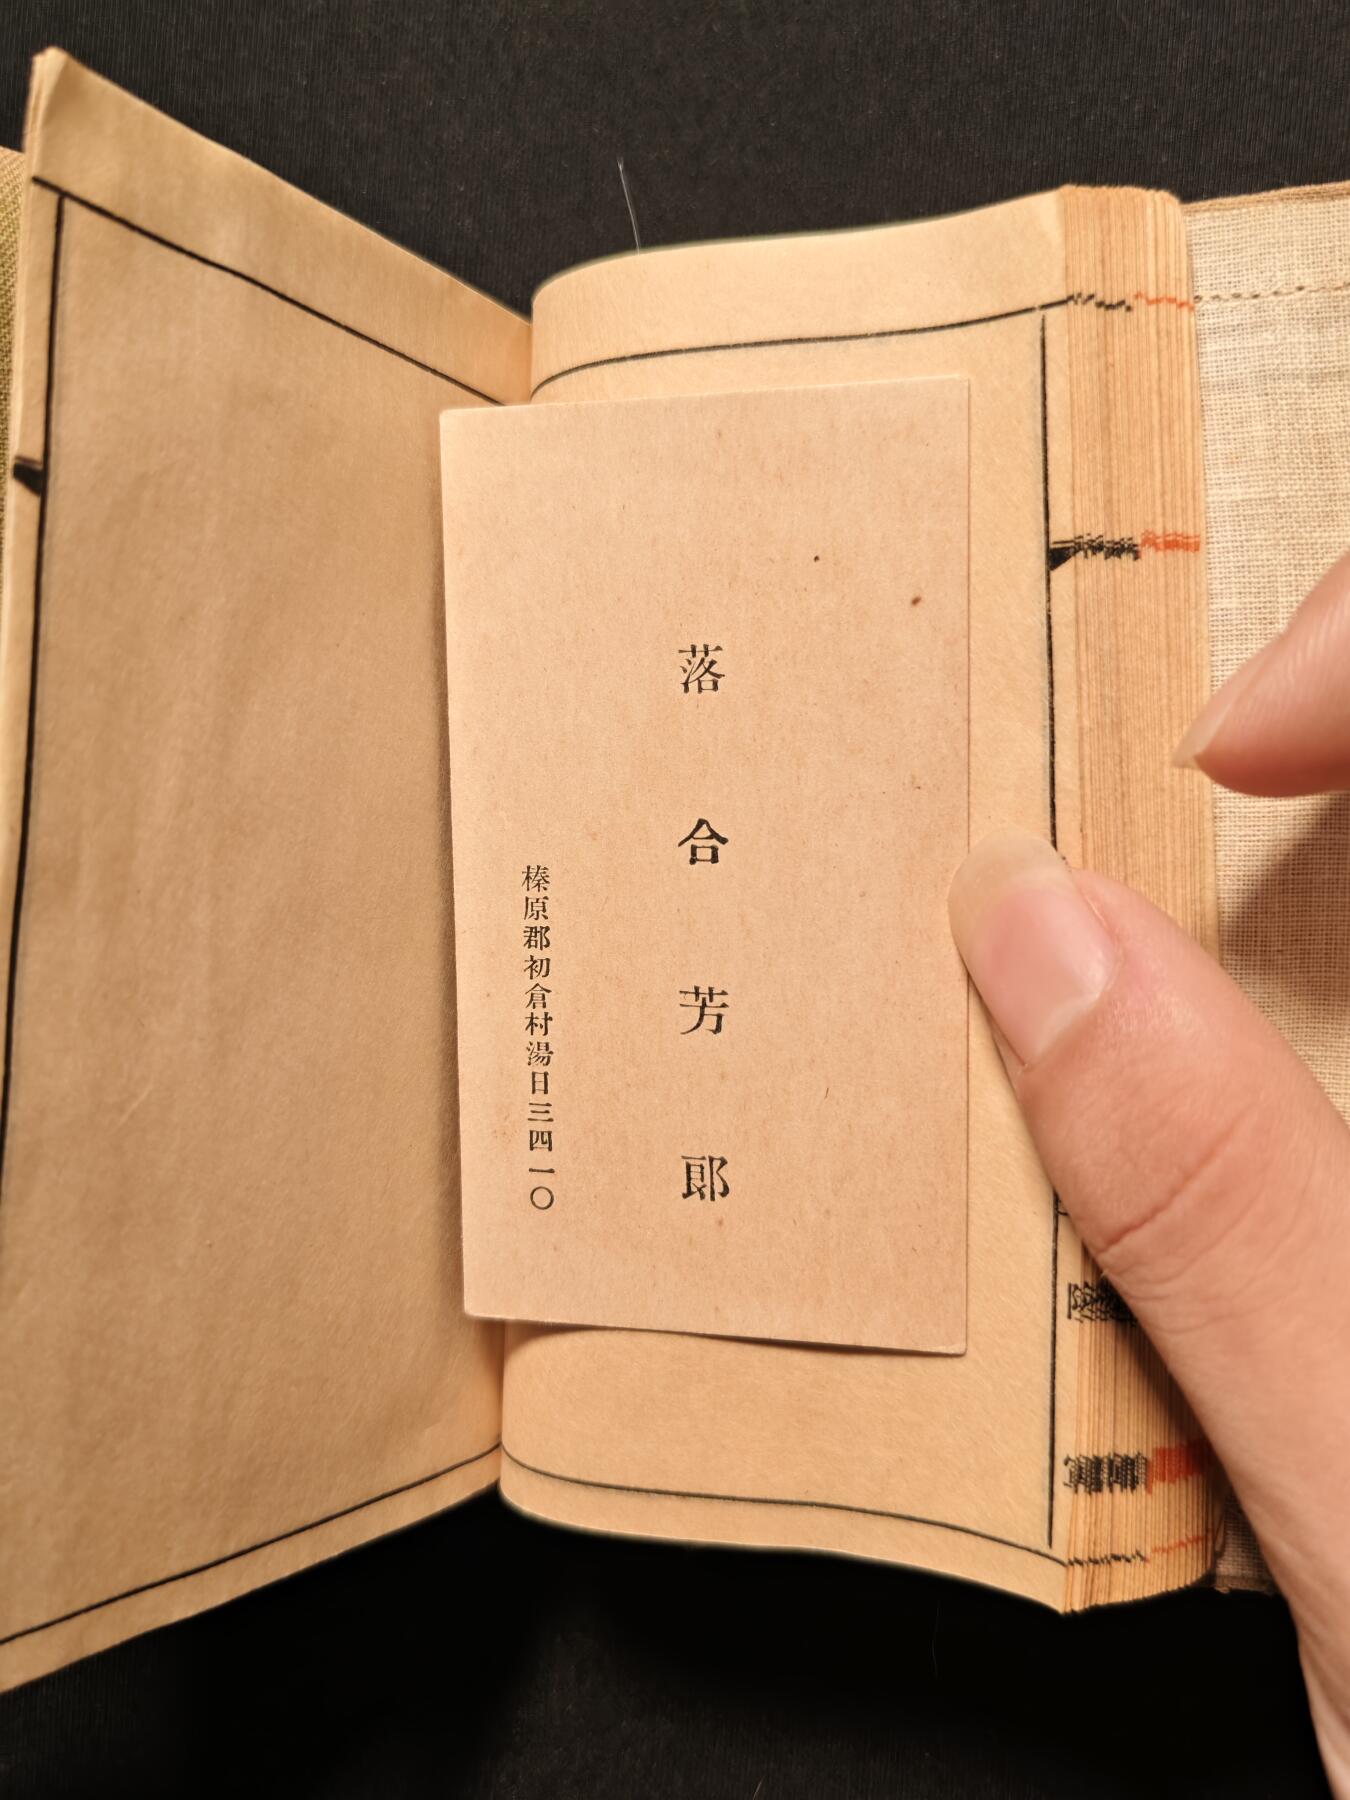 落合芳郎
榛原郡初倉村湯日三四一〇